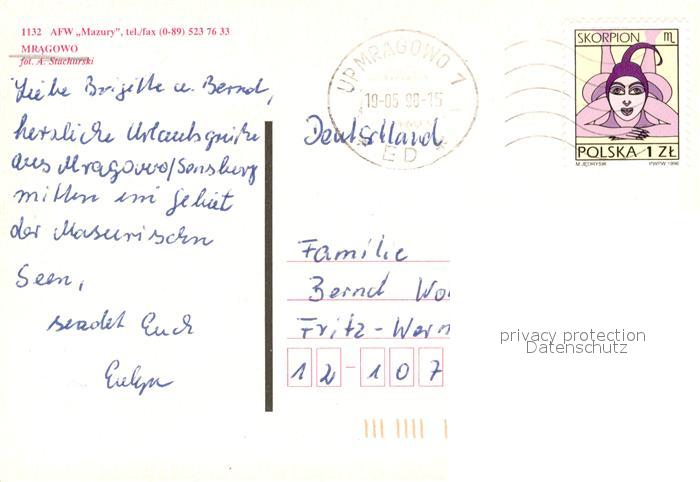 1132 AFW „Mazury", tel./fax (0-89) 523 76 33
MRĄGOWO
fot. A. Stachurski
Liebe Brigitte u. Bernd,
herzliche Urlaubsgrüße
aus Mragowo/Sensburg
mitten im Gebiet
der Masurischen
Seen,
sendet Euch
Evelyn
UP MRĄGOWO 1
19-05 98-15
ED
SKORPION ♏
POLSKA 1 ZŁ
M.JĘDRYSIK PWPW 1996
Deutschland
Familie
Bernd Wo
Fritz-Wern
12-107
privacy protection
Datenschutz